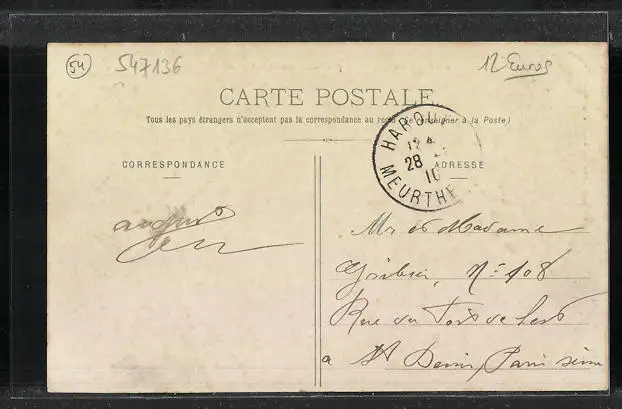 54
547136
12 Euros
CARTE POSTALE
Tous les pays étrangers n'acceptent pas la correspondance au recto (Se renseigner à la Poste)
HAROU
28
10
MEURTHE
CORRESPONDANCE
ADRESSE
Mr et Madame
N° 108
Rue du Fort de l'est
a St Denis, Paris seine